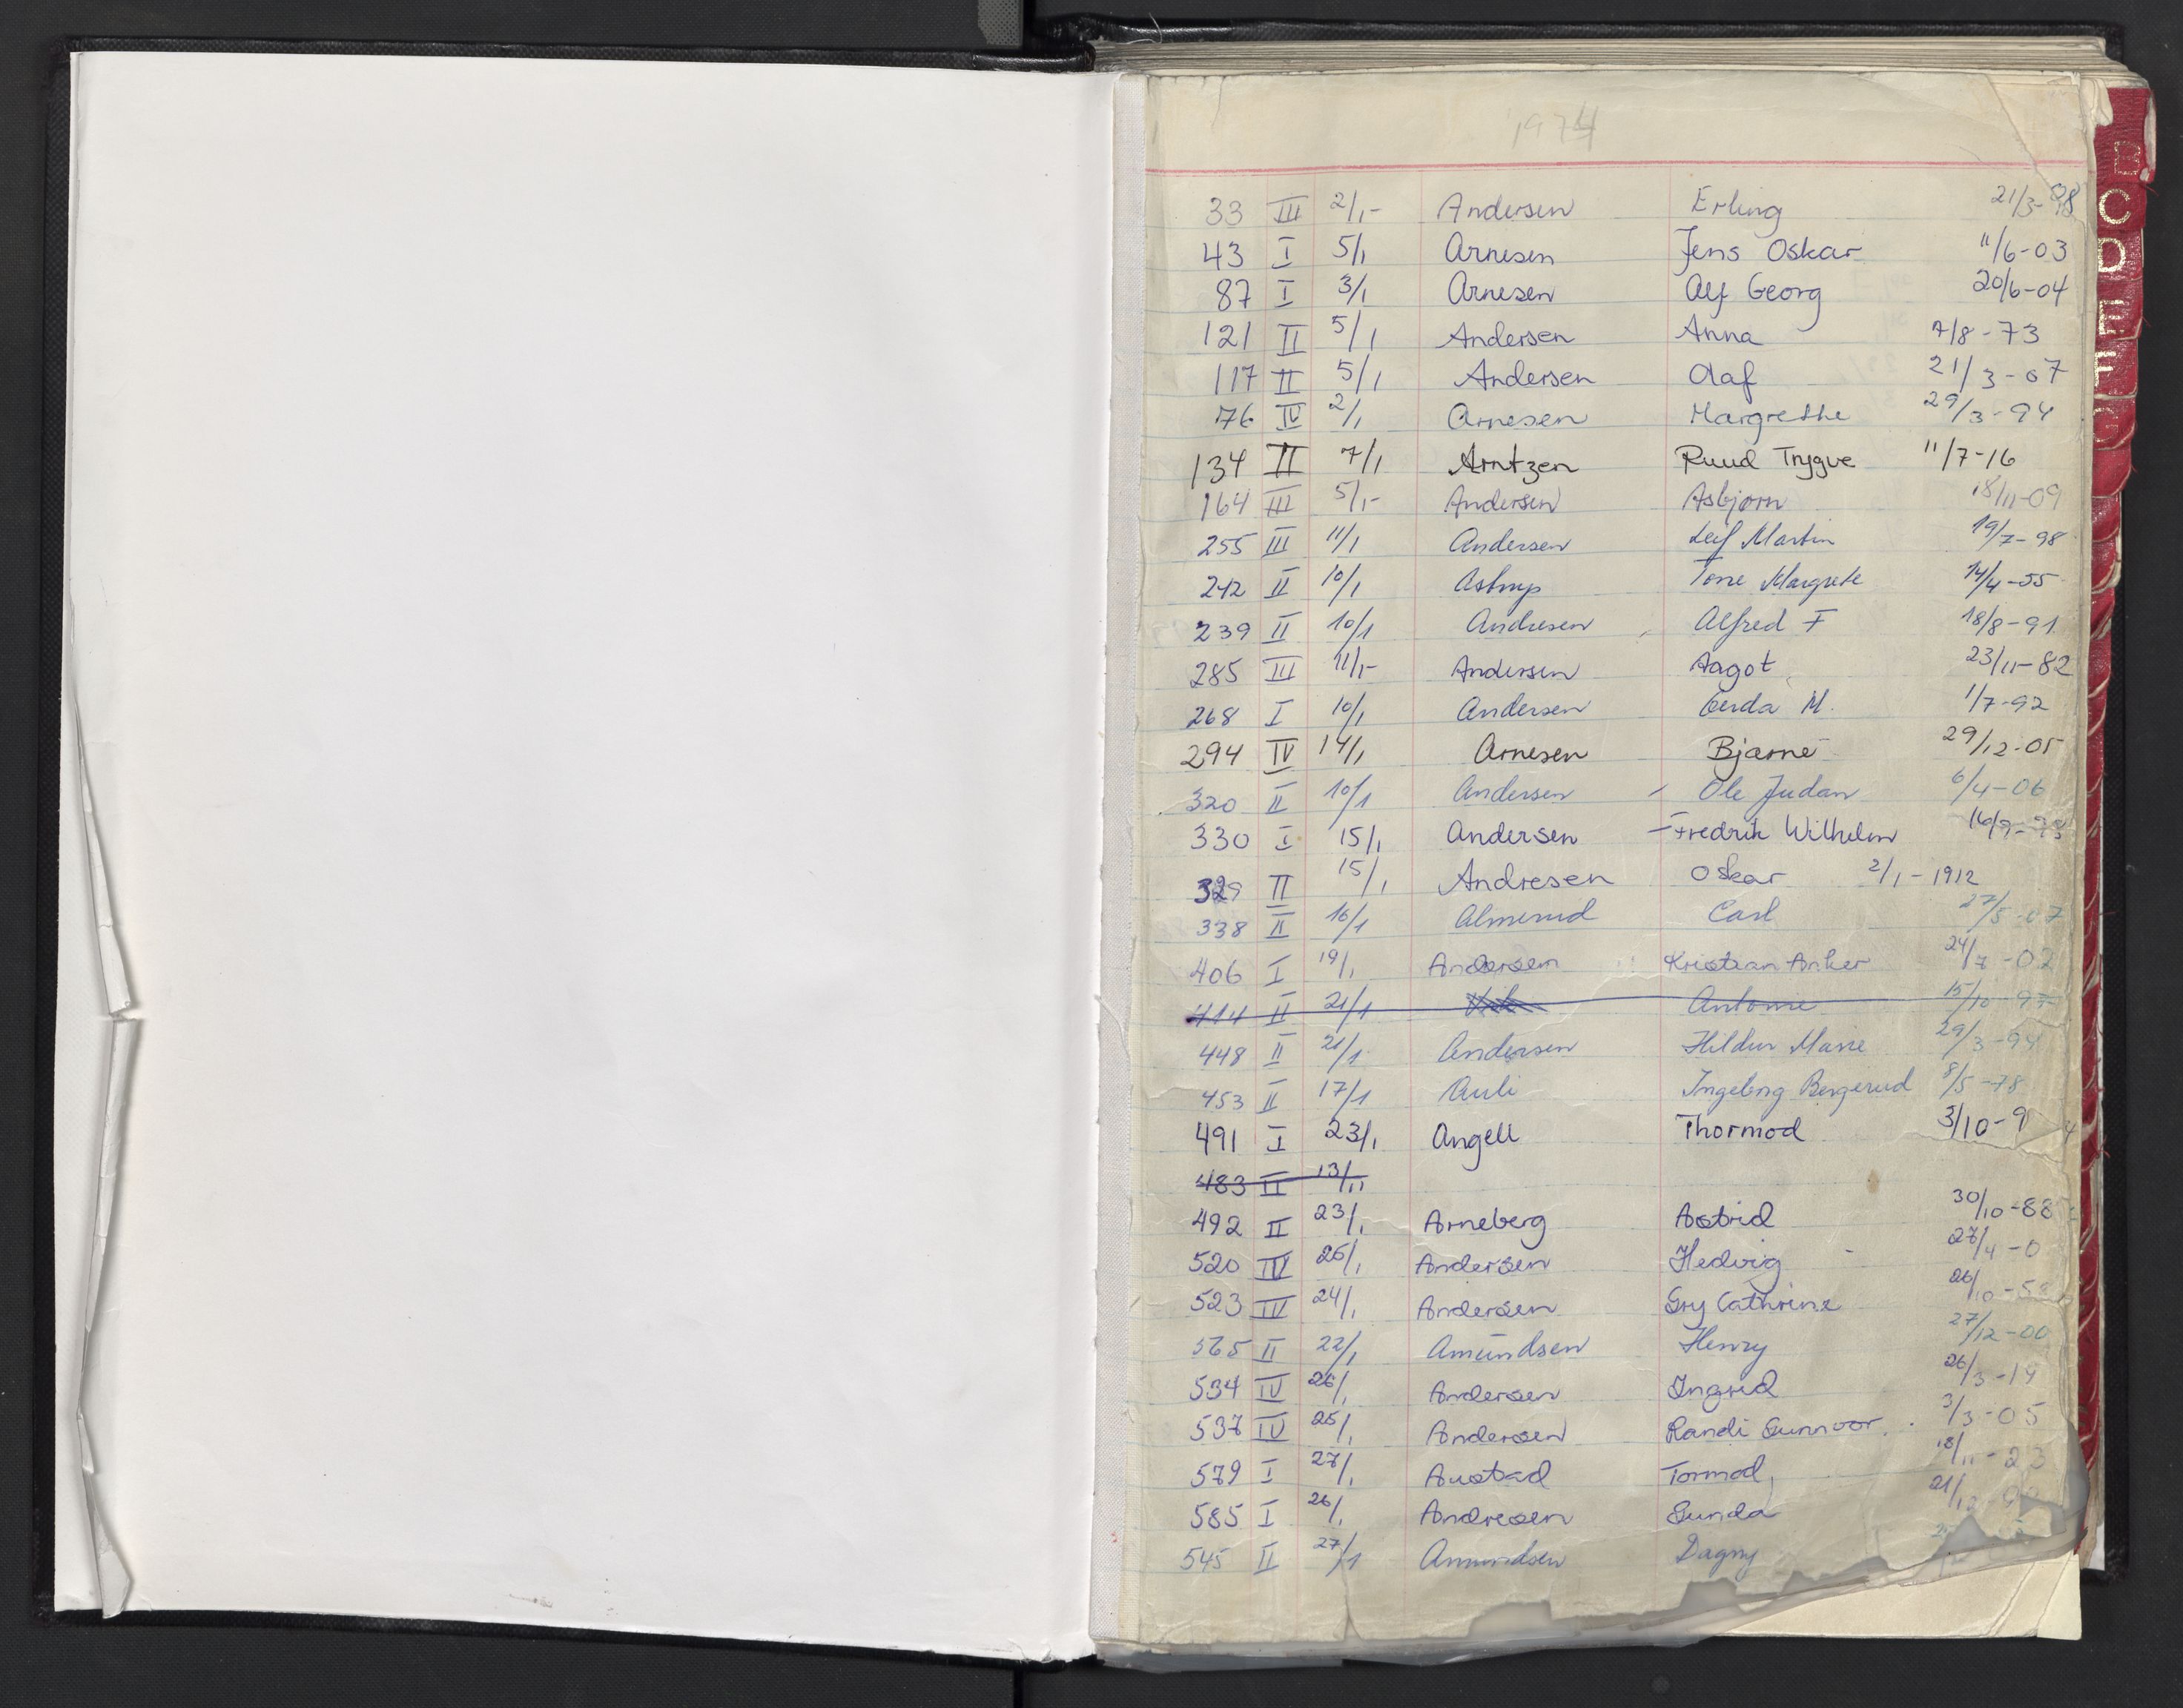 1974
33 III 2/1- Andersen Erling 21/3-98
43 I 5/1 Arnesen Jens Oskar 11/6-03
87 I 3/1 Arnesen Alf Georg 20/6-04
121 II 5/1 Andersen Anna 7/8-73
117 II 5/1 Andersen Olaf 21/3-07
76 IV 2/1 Arnesen Margrethe 29/3-94
134 II 7/1 Arntzen Ruud Trygve 11/7-16
164 III 5/1- Andersen Asbjørn 18/11-09
255 III 11/1 Andersen Leif Martin 19/7-98
242 II 10/1 Astrup Tone Margrete 14/4-55
239 II 10/1 Andresen Alfred F 18/8-91
285 III 11/1- Andersen Aagot 23/11-82
268 I 10/1 Andersen Gerda M. 1/7-92
294 IV 14/1 Arnesen Bjarne 29/12-05
320 II 10/1 Andersen - Ole Judan 6/4-06
330 I 15/1 Andersen - Fredrik Wilhelm 16/9-93
329 II 15/1 Andresen Oskar 2/1-1912
338 II 16/1 Almerud Carl 27/5-07
406 I 19/1 Andersen Kristian Anker 24/7-02
414 II 21/1 Antonie 15/10-97
448 II 21/1 Andersen Hildur Marie 29/3-94
453 II 17/1 Auli Ingeborg Bergerud 8/5-78
491 I 23/1 Angell Thormod 3/10-94
483 II 13/11
492 II 23/1 Arneberg Astrid 30/10-88
520 IV 25/1 Andersen Hedvig 27/4-0
523 IV 24/1 Andersen Gry Cathrine 26/10-5
565 II 22/1 Amundsen Henry 27/12-00
534 IV 26/1 Andersen Ingrid 26/3-19
537 IV 25/1 Andersen Randi Gunnvor 3/3-05
579 I 27/1 Austad Tormod 18/11-23
585 I 26/1 Andresen Gunda 21/12-9
545 II 27/1 Amundsen Dagny
C
D
E
F
G